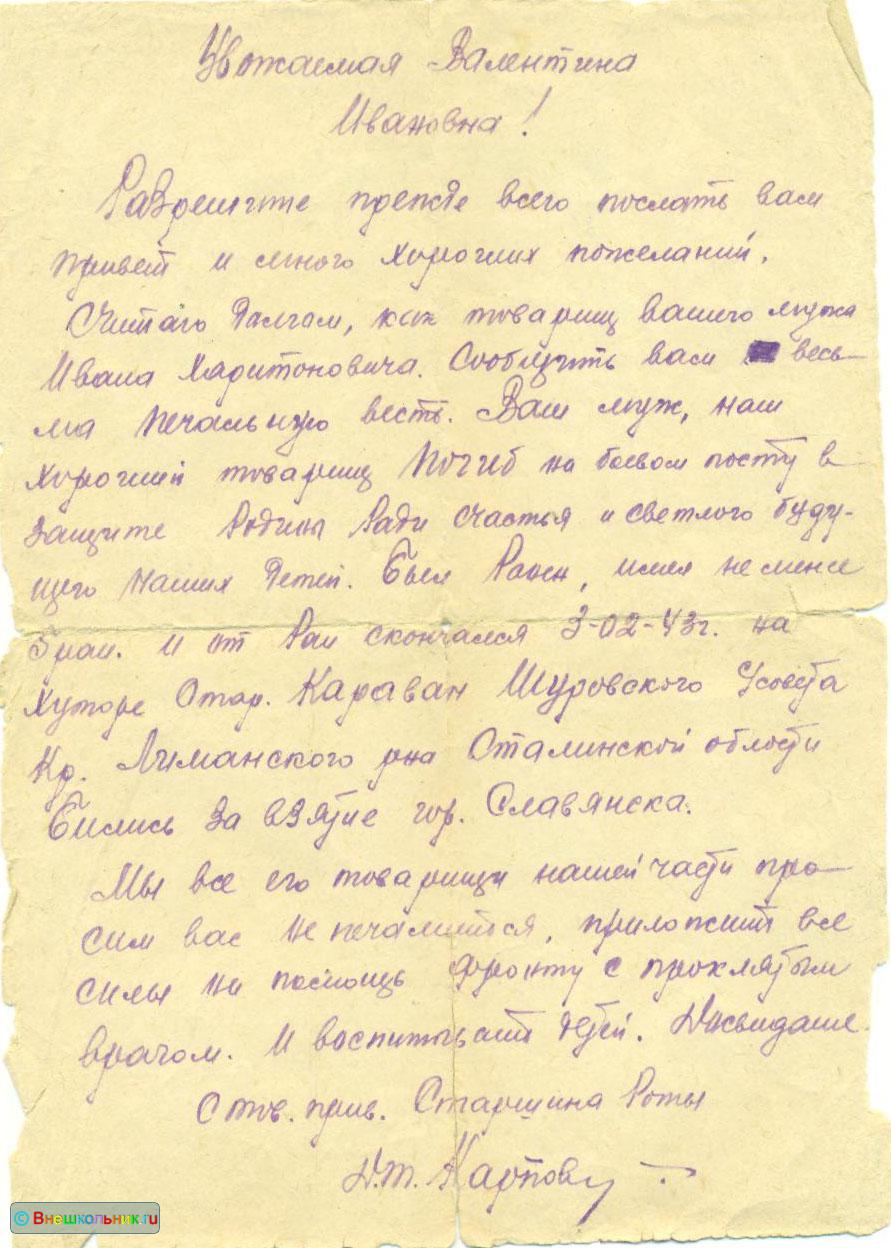 Уважаемая Валентина
Ивановна!
Разрешите прежде всего послать вам
привет и много хороших пожеланий.
Считаю Далгом, как товарищ вашего мужа
Ивана Харитоновича. Сообщить вам весь-
ма печальную весть. Ваш муж, наш
хороший товарищ Погиб на боевом посту в
защите Родины Ради счастья и светлого буду-
щего Наших Детей. Был Ранен, имея не менее
5 ран. И от Ран скончался 3-02-43г. на
Хуторе Стар. Караван Шуровского С/совета
Кр. Лиманского р-на Сталинской области
Бились за взятие гор. Славянска.
Мы все его товарищи нашей части про-
сим вас не печалится, приложить все
силы на помощь Фронту с проклятым
врагом. И воспитывать детей. Досвидание.
С тов. прив. Старшина Роты
Карпов
© Внешкольник.ru